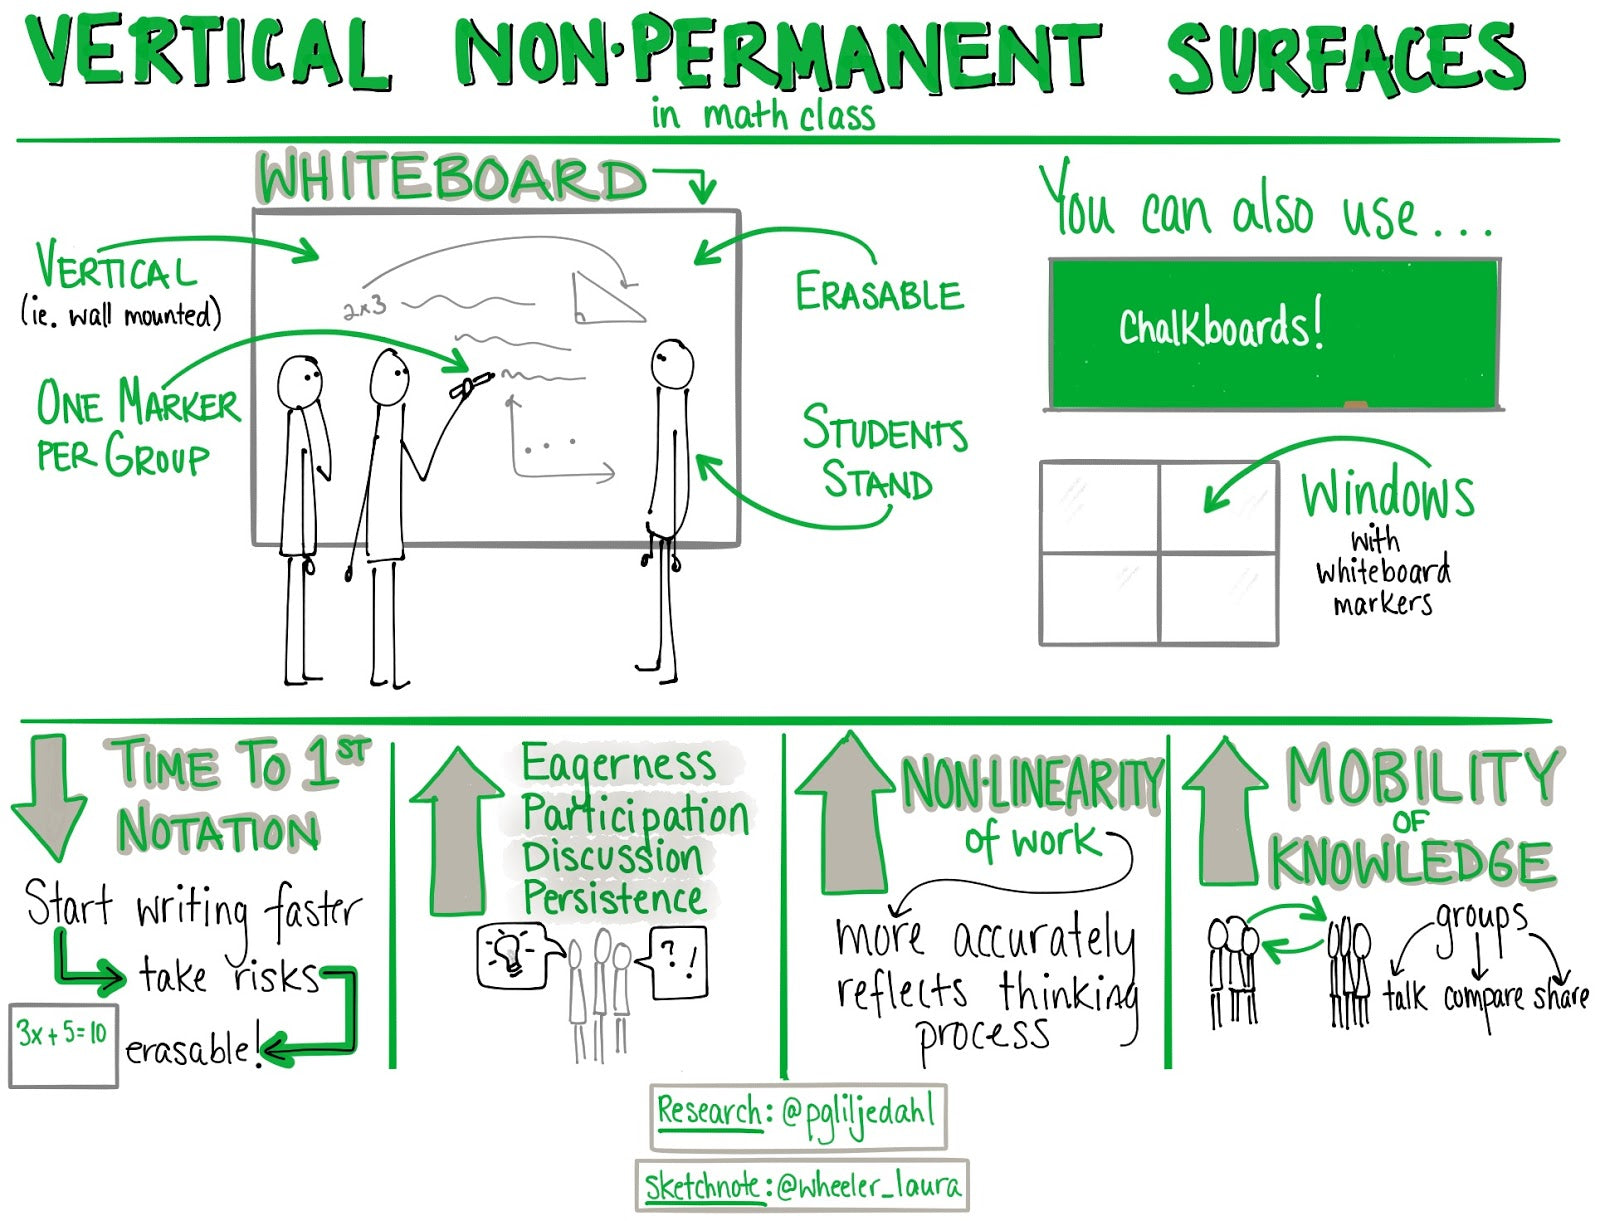 VERTICAL NON-PERMANENT SURFACES
in math class
WHITEBOARD
VERTICAL
(ie. wall mounted)
ONE MARKER
PER GROUP
2x3
ERASABLE
STUDENTS
STAND
You can also use...
Chalkboards!
Windows
with
whiteboard
markers
TIME TO 1ST
NOTATION
Start writing faster
take risks
3x + 5 = 10
erasable!
Eagerness
Participation
Discussion
Persistence
? !
NON-LINEARITY
of work
more accurately
reflects thinking
process
MOBILITY
OF
KNOWLEDGE
groups
talk compare share
Research: @pgliljedahl
Sketchnote: @wheeler_laura